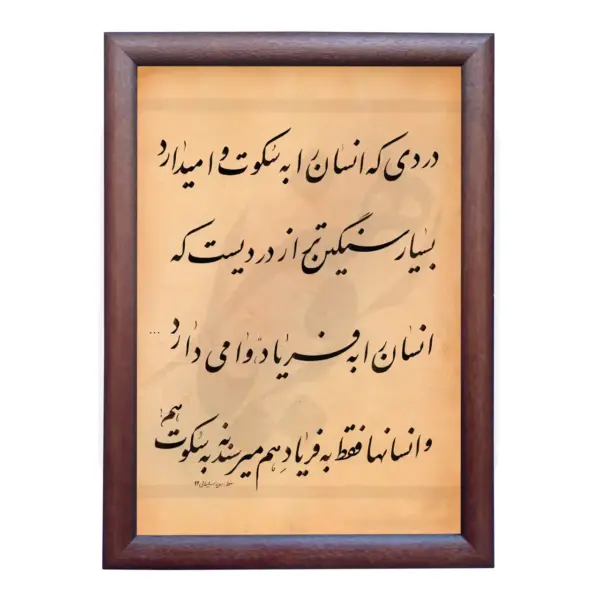 دردی که انسان را به سکوت وامیدارد
بسیار سنگین تر از دردیست که
انسان را به فریاد وامی دارد ...
و انسانها فقط به فریاد هم میرسند نه به سکوت هم!